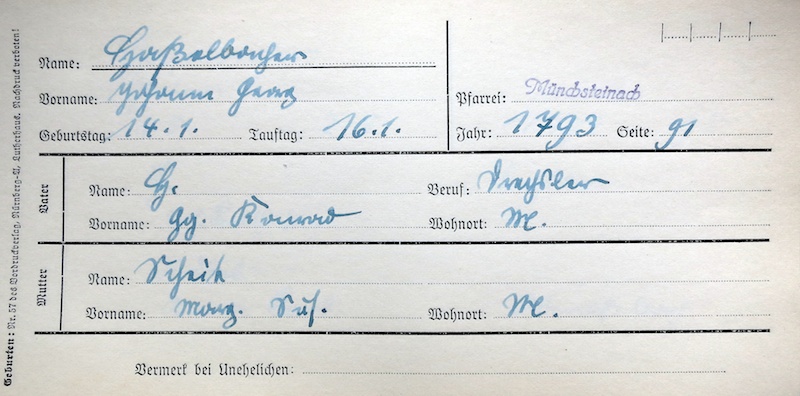 Name: Haßelbacher
Vorname: Johann Georg
Pfarrei: Münchsteinach
Geburtstag: 14.1. Tauftag: 16.1.
Jahr: 1793 Seite: 91
Vater
Name: H. Beruf: Drechsler
Vorname: Gg. Konrad Wohnort: M.
Mutter
Name:
Vorname: Marg. Wohnort: M.
Vermerk bei Unehelichen:
Geburten: Nr. 57 des Vordruckverlag, Nürnberg-A, Lutherhaus. Nachdruck verboten!